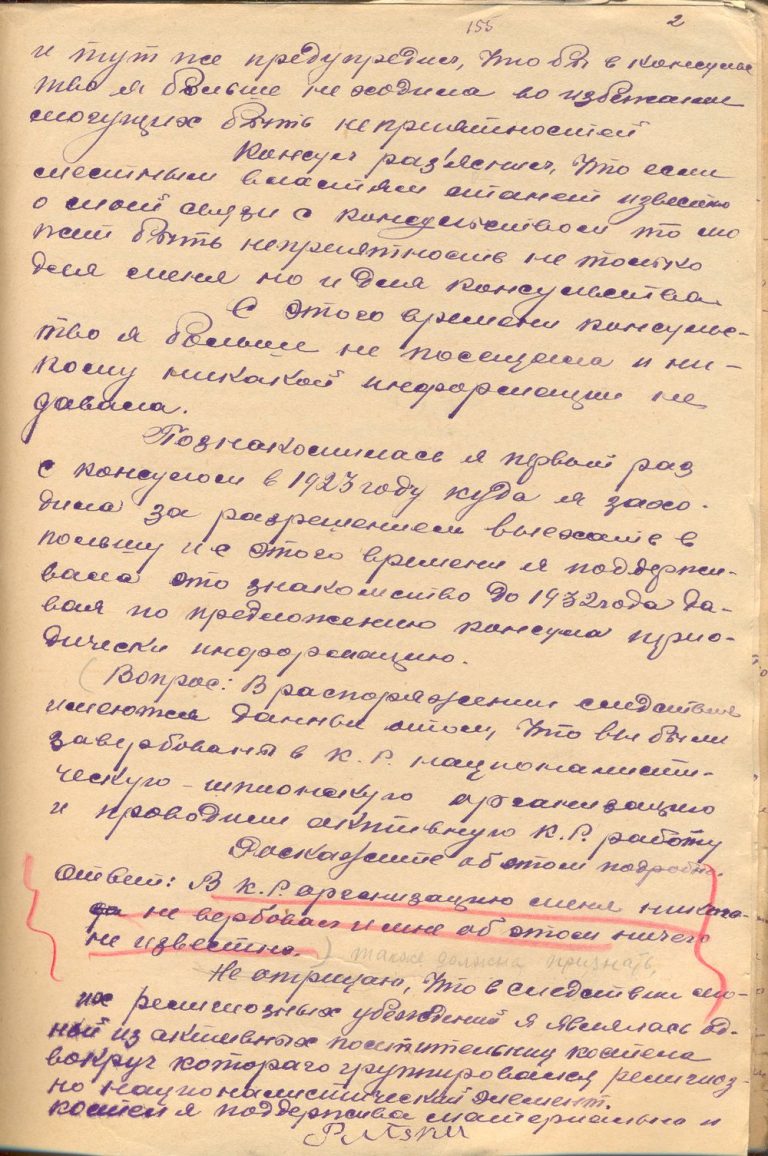 155 2
и тут же предупредил, что бы в консульс
тво я больше не ходила во избежание
могущих быть неприятностей
Консул раз'яснил, что если
местным властям станет известно
о моей связи с консульством то мо
жет быть неприятность не только
для меня но и для консульства.
С этого времени консульс-
тво я больше не посещала и ни-
кому никакой информации не
давала.
Познакомилась я первый раз
с консулом в 1923 году куда я захо-
дила за разрешением выехать в
польшу и с этого времени я поддержи-
вала это знакомство до 1932 года да-
вая по предложению консула перио-
дически информацию.
(Вопрос: В распоряжении следствия
имеются данные о том, что вы были
завербованы в К.Р. националисти-
ческую-шпионскую организацию
и проводили активную К.Р. работу
Расскажите об этом подробно.
Ответ: В К.Р. организацию меня никого-
да не вербовал и мне об этом ничего
не известно.) также должна признать,
Не отрицаю, что в следствии мо-
их религиозных убеждений я являлась од-
ной из активных посетительниц костела
вокруг которого группировался религиоз-
но националистический элемент.
костел я поддержива материально и